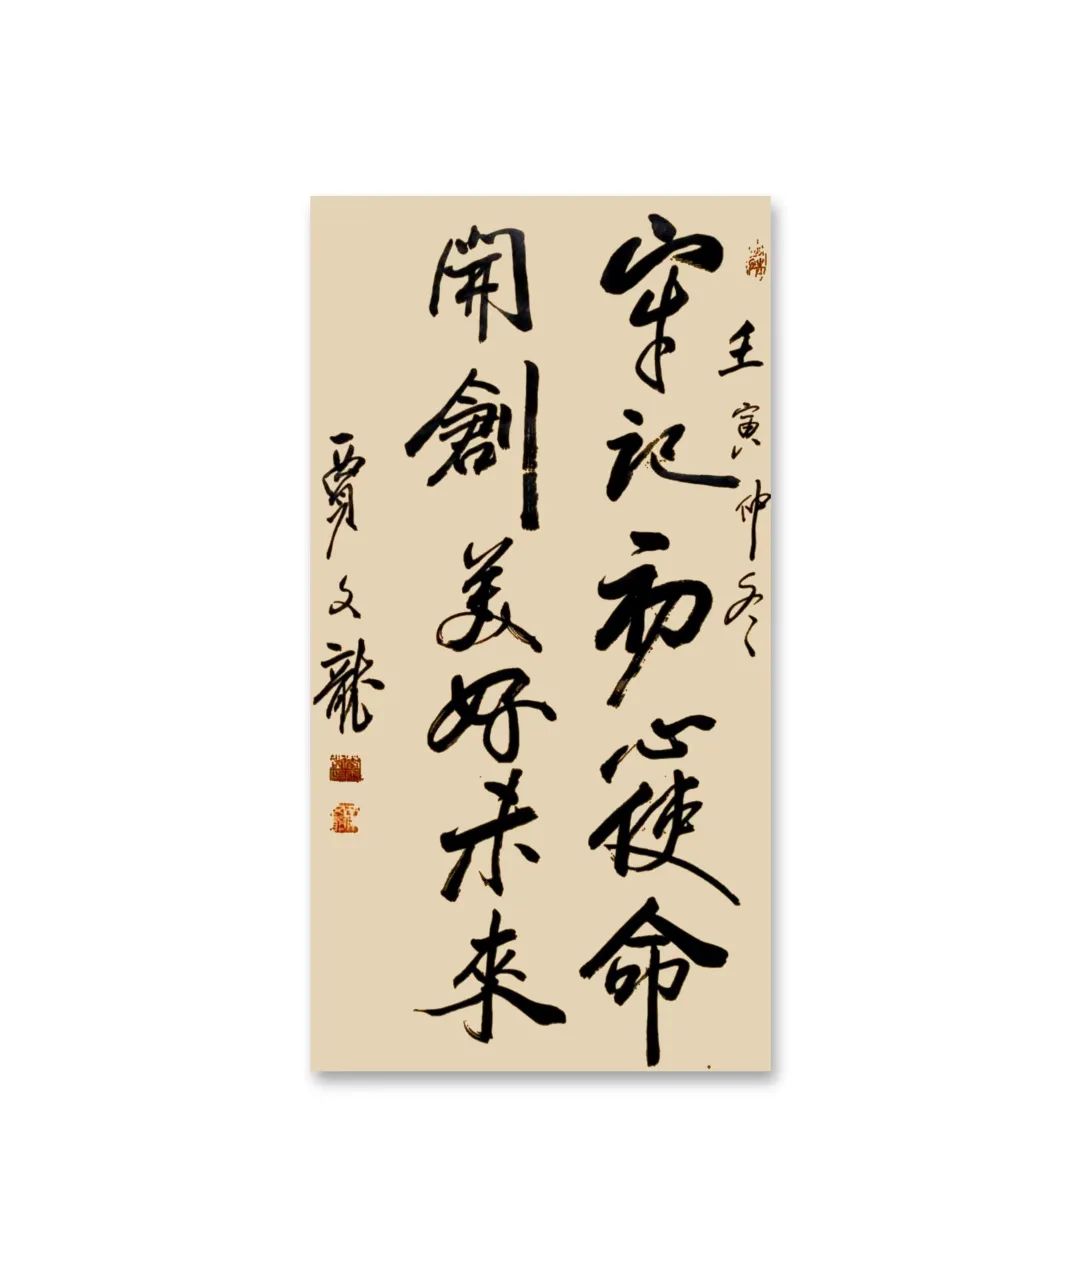 壬寅仲冬
牢記初心使命
開創美好未來
賈文龍